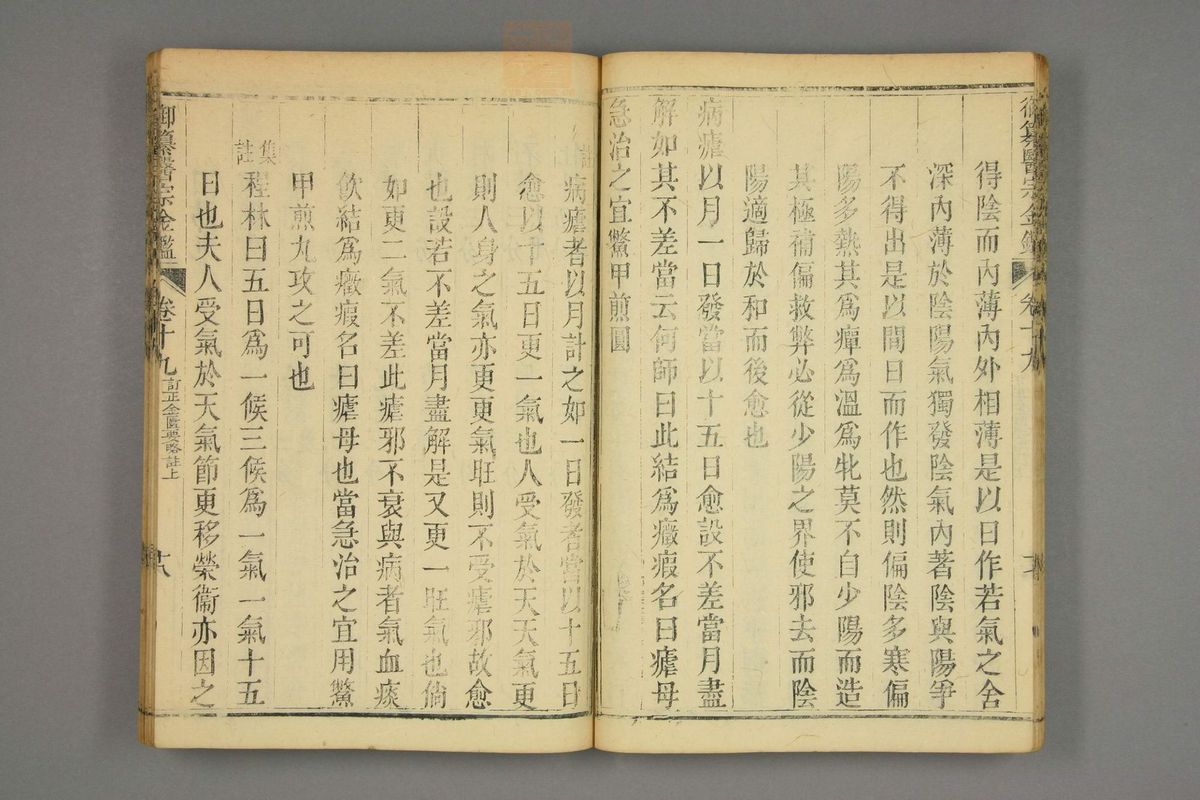 御纂醫宗金鑑 卷十九
得陰而內薄內外相薄是以日作若氣之舍
深內薄於陰陽氣獨發陰氣內著陰與陽爭
不得出是以間日而作也然則偏陰多寒偏
陽多熱其為瘅為溫為牝莫不自少陽而造
其極補偏救弊必從少陽之界使邪去而陰
陽適歸於和而後愈也
病瘧以月一日發當以十五日愈設不差當月盡
解如其不差當云何師曰此結為癥瘕名曰瘧母
急治之宜鱉甲煎圓
病瘧者以月計之如一日發者當以十五日
愈以十五日更一氣也人受氣於天天氣更
則人身之氣亦更更氣旺則不受瘧邪故愈
也設若不差當月盡解是又更一旺氣也倘
如更二氣不差此瘧邪不衰與病者氣血痰
飲結為癥瘕名曰瘧母也當急治之宜用鱉
甲煎丸攻之可也
集註程林曰五日為一候三候為一氣一氣十五
日也夫人受氣於天氣節更移榮衛亦因之
御纂醫宗金鑑 卷十九 訂正金匱要略註上 十八